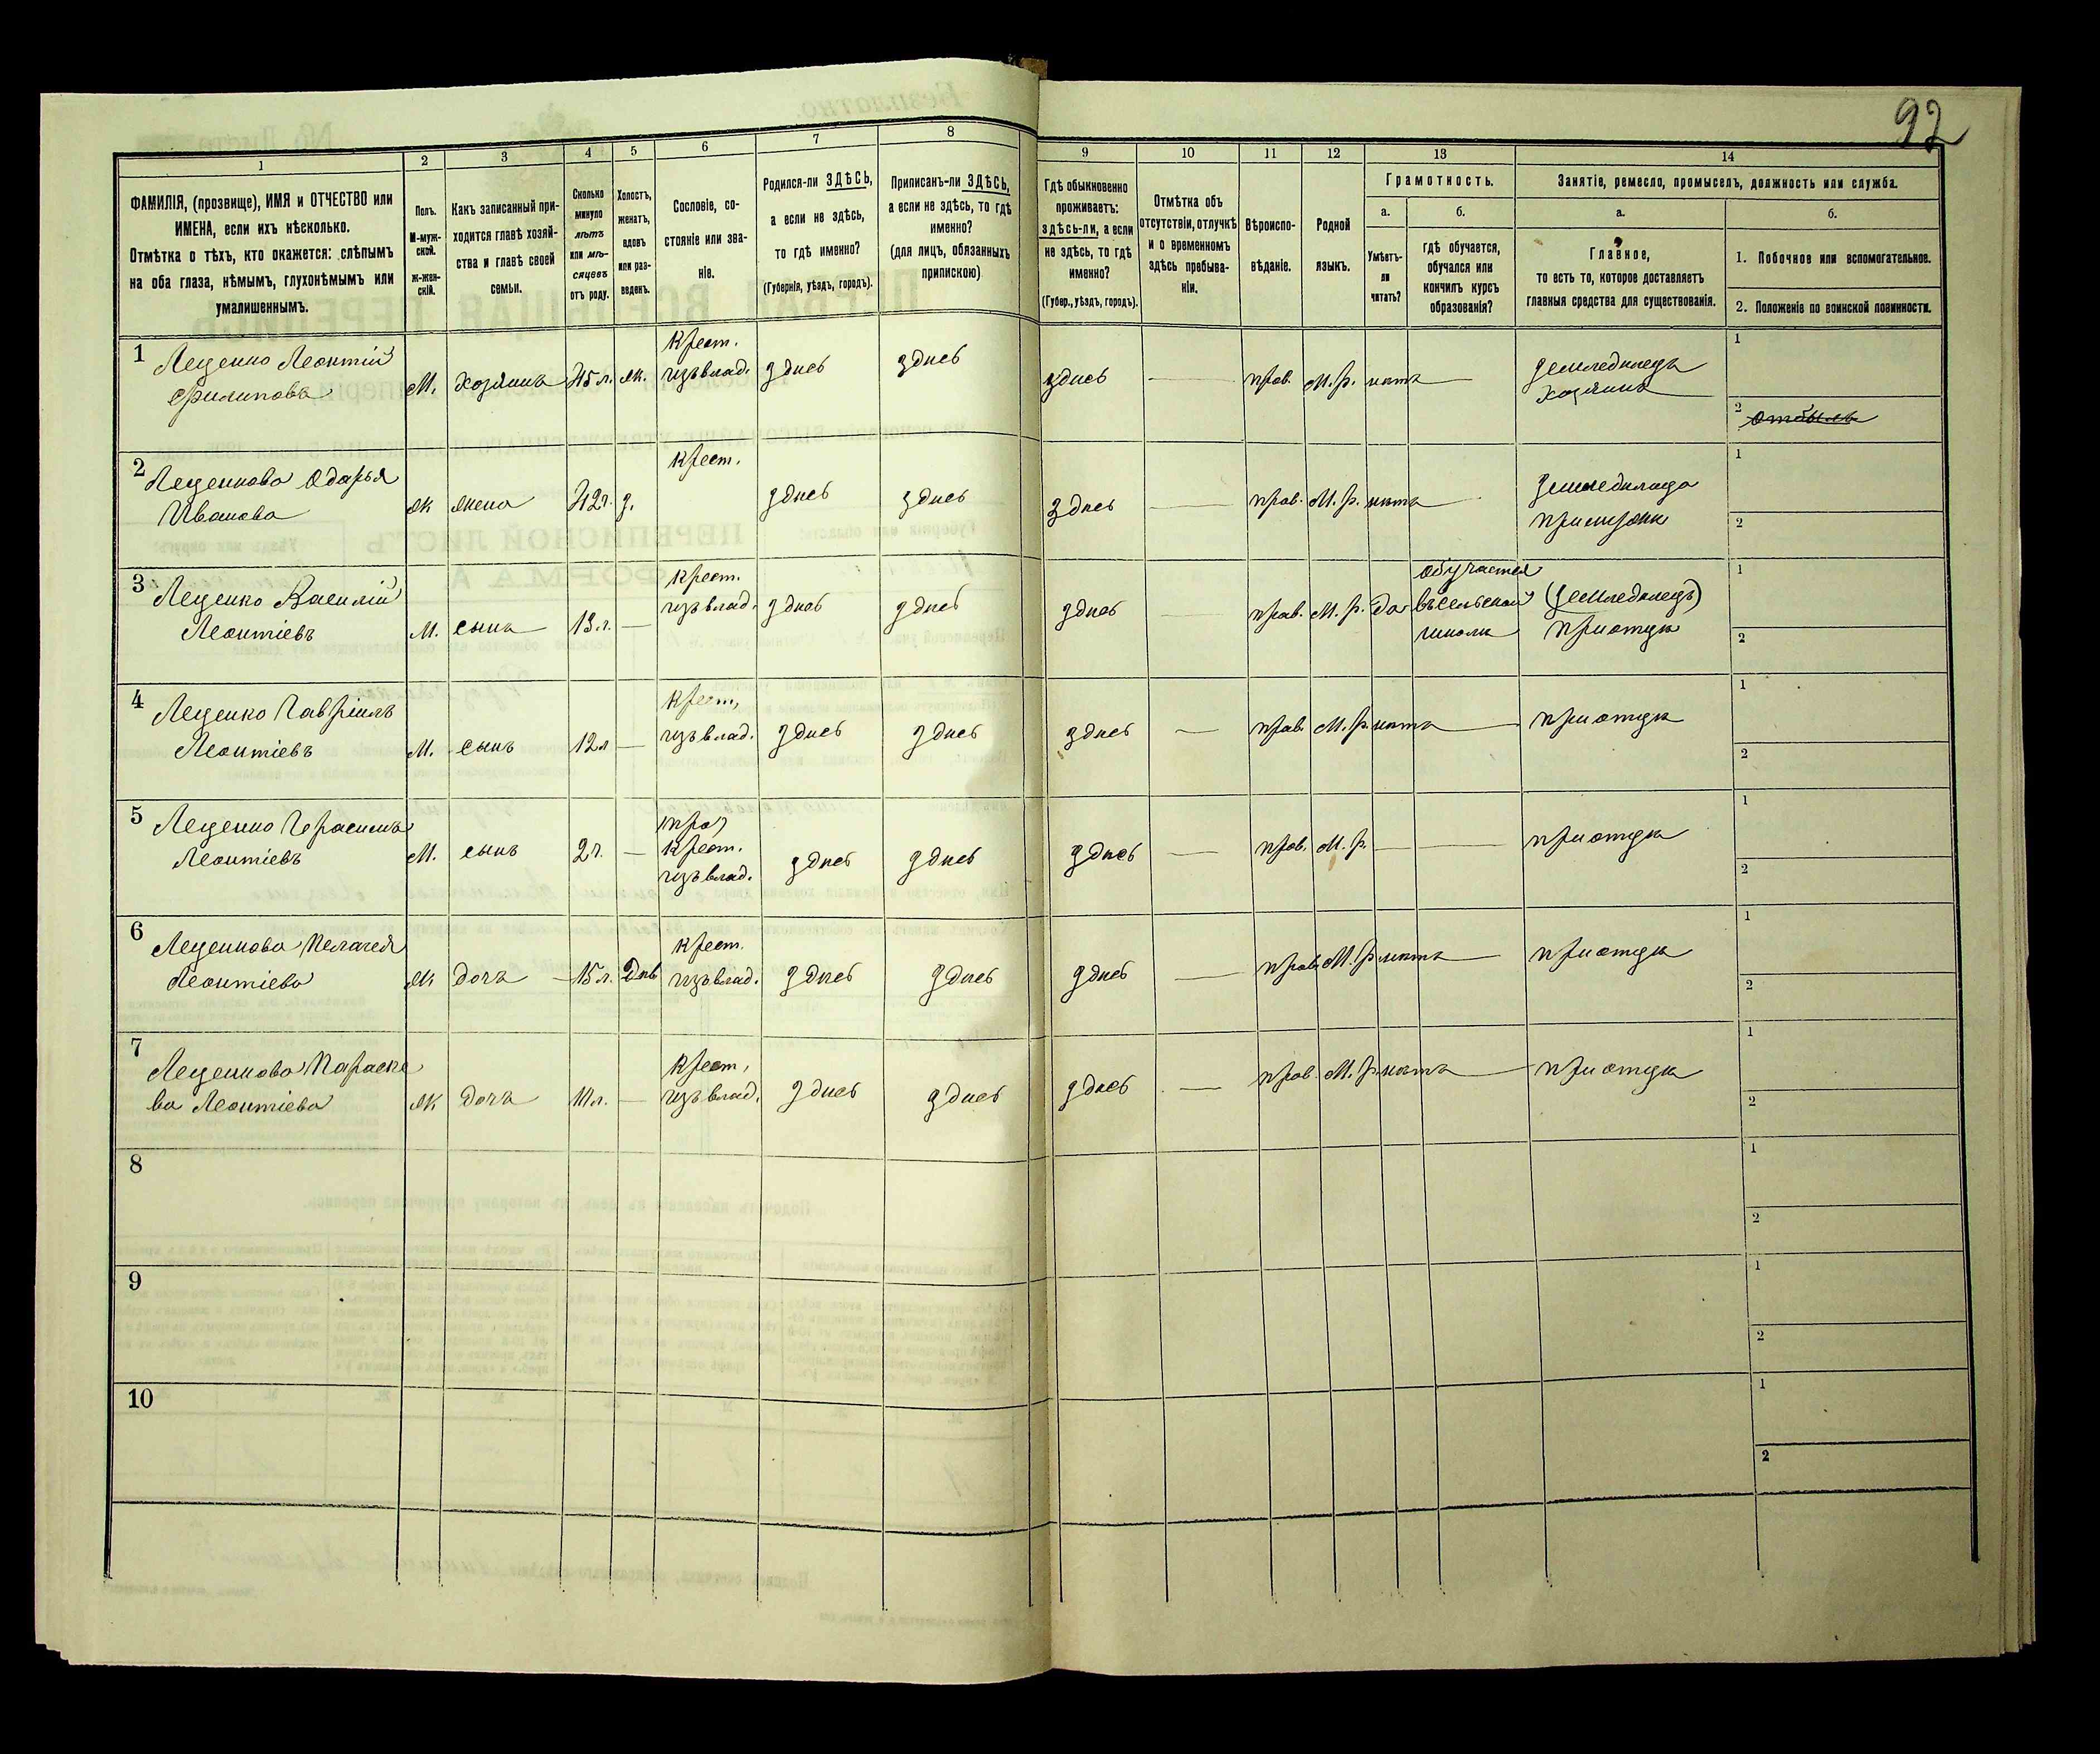 92
1 2 3 4 5 6 7 8 9 10 11 12 13 14
ФАМИЛІЯ, (прозвище), ИМЯ и ОТЧЕСТВО или
ИМЕНА, если ихъ нѣсколько.
Отмѣтка о тѣхъ, кто окажется: слѣпымъ
на оба глаза, нѣмымъ, глухонѣмымъ или
умалишеннымъ.
Полъ.
М-муж-
ской.
Ж-жен-
скій.
Какъ записанный при-
ходится главѣ хозяй-
ства и главѣ своей
семьи.
Сколько
минуло
лѣтъ
или мѣ-
сяцевъ
отъ роду.
Холостъ,
женатъ,
вдовъ
или раз-
веденъ.
Сословіе, со-
стояніе или зва-
ніе.
Родился-ли ЗДѢСЬ,
а если не здѣсь,
то гдѣ именно?
(Губернія, уѣздъ, городъ).
Приписанъ-ли ЗДѢСЬ,
а если не здѣсь, то гдѣ
именно?
(для лицъ, обязанныхъ
припискою)
Гдѣ обыкновенно
проживаетъ:
здѣсь-ли, а если
не здѣсь, то гдѣ
именно?
(Губер., уѣздъ, городъ).
Отмѣтка объ
отсутствіи, отлучкѣ
и о временномъ
здѣсь пребыва-
ніи.
Вѣроиспо-
вѣданіе.
Родной
языкъ.
Грамотность.
а.
Умѣетъ-
ли
читать?
б.
гдѣ обучается,
обучался или
кончилъ курсъ
образованія?
Занятіе, ремесло, промыселъ, должность или служба.
а.
Главное,
то есть то, которое доставляетъ
главныя средства для существованія.
б.
1. Побочное или вспомогательное.
2. Положеніе по воинской повинности.
1 Леценко Леонтій
Филиповъ
М. хозяинъ 45 л. ж.
крест.
изъ влад. здѣсь здѣсь здѣсь — прав. М. р. нѣтъ —
земледѣлецъ
хозяинъ
1
2 отбылъ
2 Леценкова Одарья
Иванова
ж жена 42 г. з.
крест.
здѣсь здѣсь здѣсь — прав. М. р. нѣтъ —
1
2
3 Леценко Василій
Леонтіевъ
М. сынъ 13 л. —
крест.
изъ влад. здѣсь здѣсь здѣсь — прав. М. р. да
обучается
въ сельской
школѣ
(земледѣлецъ)
при отцѣ
1
2
4 Леценко Гавріилъ
Леонтіевъ
М. сынъ 12 л —
крест,
изъ влад. здѣсь здѣсь здѣсь — прав. М. р. нѣтъ — при отцѣ
1
2
5 Леценко Герасимъ
Леонтіевъ
М. сынъ 2 г. —
крест.
изъ влад. здѣсь здѣсь здѣсь — прав. М. р. — — при отцѣ
1
2
6 Леценкова Пелагея
Леонтіева
ж дочь 15 л. Дѣв
крест.
изъ влад. здѣсь здѣсь здѣсь — прав. М. р. нѣтъ — при отцѣ
1
2
7 Леценкова Параске
ва Леонтіева
ж дочь 11 л. —
крест,
изъ влад. здѣсь здѣсь здѣсь — прав. М. р. нѣтъ — при отцѣ
1
2
8
1
2
9
1
2
10
1
2